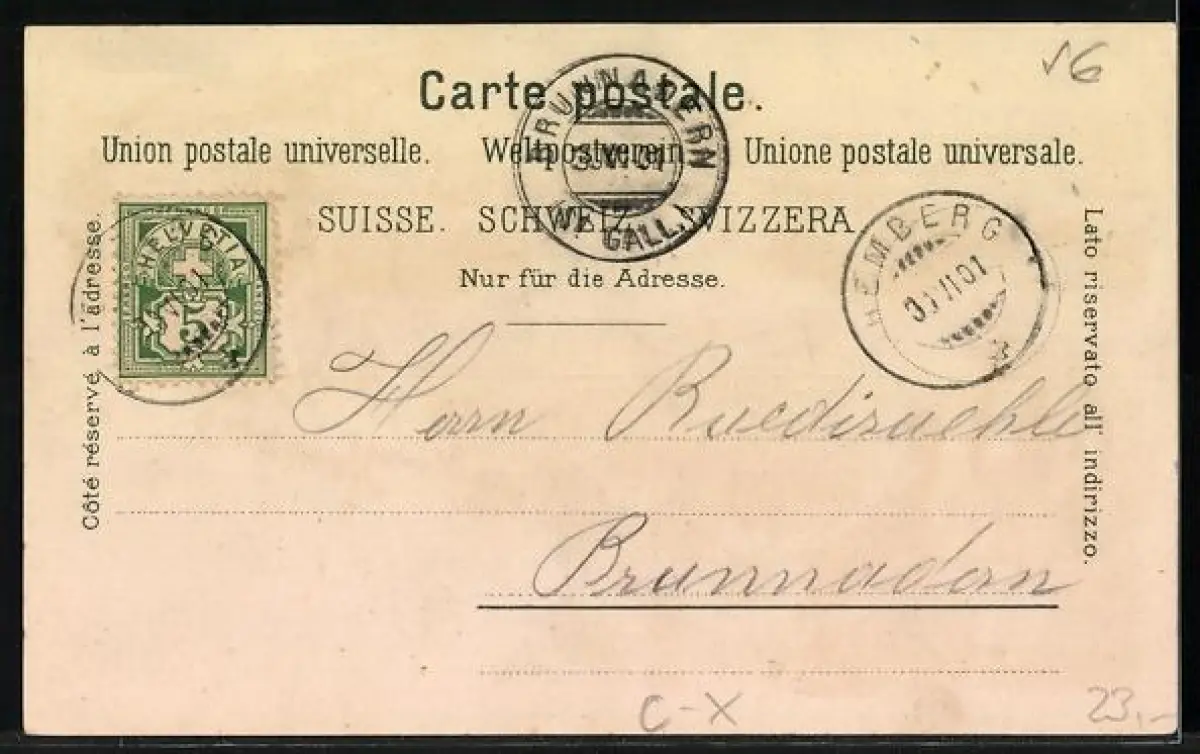 56
Carte postale.
Union postale universelle. Weltpostverein. Unione postale universale.
SUISSE. SCHWEIZ. SVIZZERA
Nur für die Adresse.
BRUNNADERN
(ST. GALL.)
HEMBERG
VII 01
HELVETIA
5
Côté réservé à l'adresse.
Lato riservato all' indirizzo.
Herrn
Brunnadern
C-X
23,-